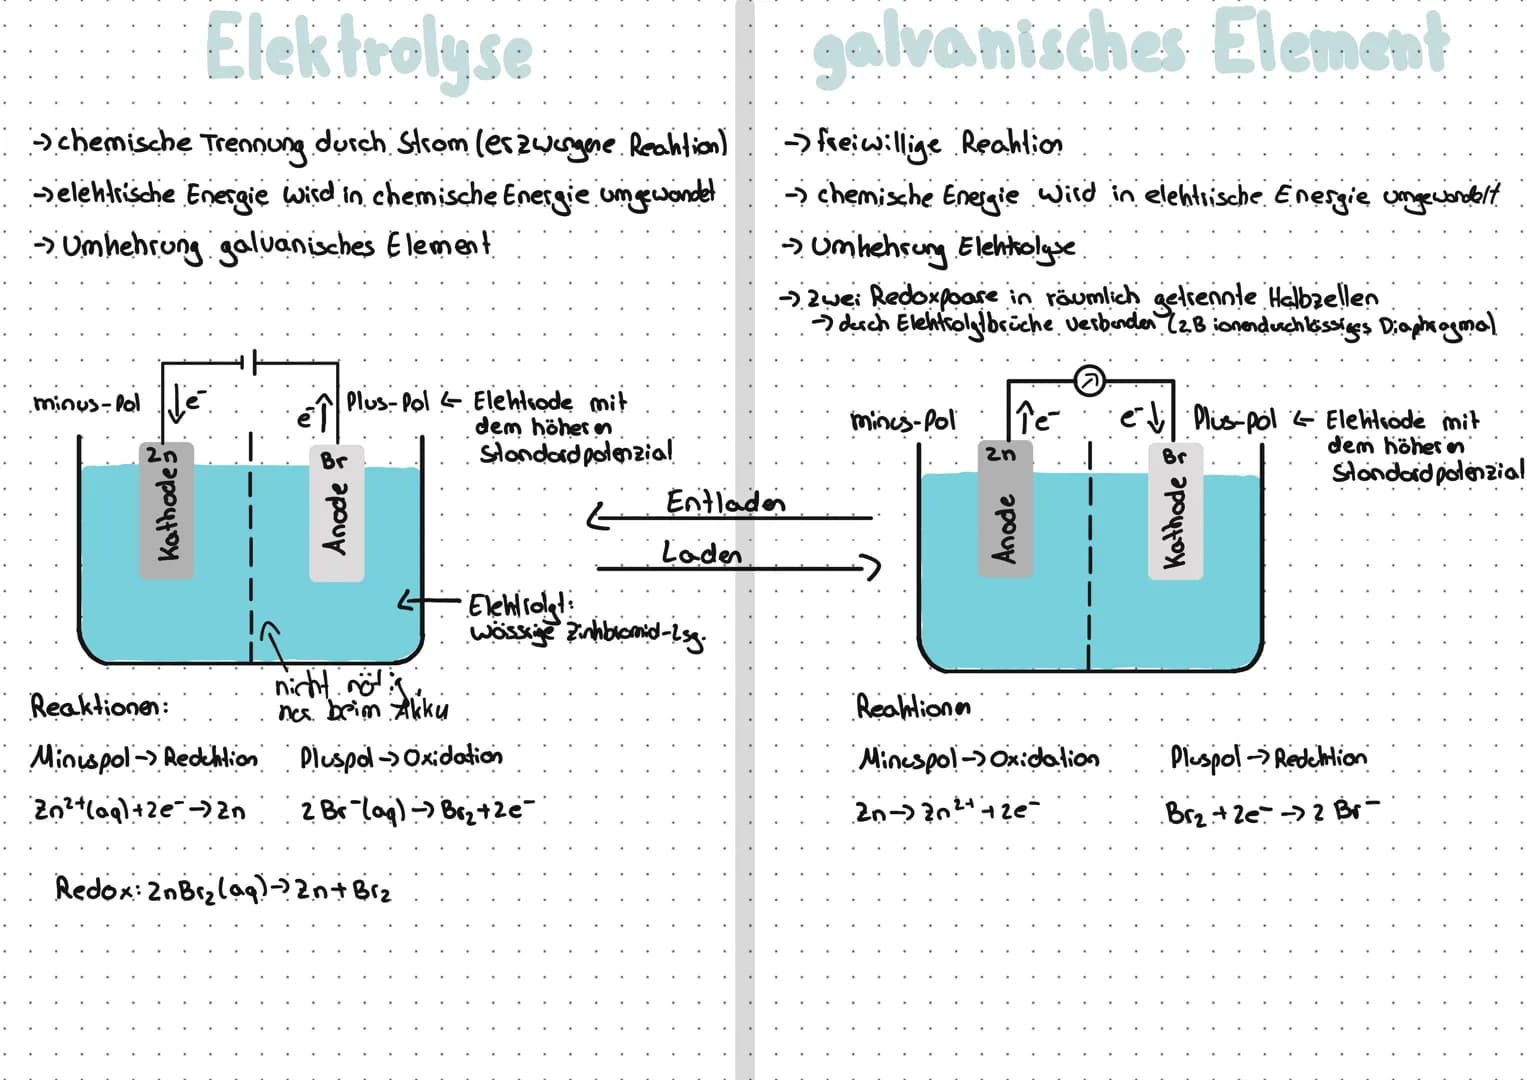 Elektrolyse
→ chemische Trennung durch Strom (erzwungene Reaktion)
→ elektrische Energie wird in chemische Energie umgewandelt
→ Umkehrung galvanisches Element
minus-Pol
e⁻
e⁻
Plus-Pol ← Elektrode mit
dem höheren
Standardpotenzial
Zn
Kathode
Br
Anode
Elektrolyt:
wässrige Zinkbromid-Lsg.
nicht nötig
nur beim Akku
Reaktionen:
Minuspol → Reduktion Pluspol → Oxidation
Zn²⁺(aq) + 2e⁻ → Zn 2 Br⁻(aq) → Br₂ + 2e⁻
Redox: ZnBr₂(aq) → Zn + Br₂
Entladen
Laden
galvanisches Element
→ freiwillige Reaktion
→ chemische Energie wird in elektrische Energie umgewandelt
→ Umkehrung Elektrolyse
→ zwei Redoxpaare in räumlich getrennte Halbzellen
→ durch Elektrolytbrücke verbunden (z.B ionendurchlässiges Diaphragma)
minus-Pol
e⁻
e⁻
Plus-Pol ← Elektrode mit
dem höheren
Standardpotenzial
Zn
Anode
Br
Kathode
Reaktionen
Minuspol → Oxidation Pluspol → Reduktion
Zn → Zn²⁺ + 2e⁻ Br₂ + 2e⁻ → 2 Br⁻